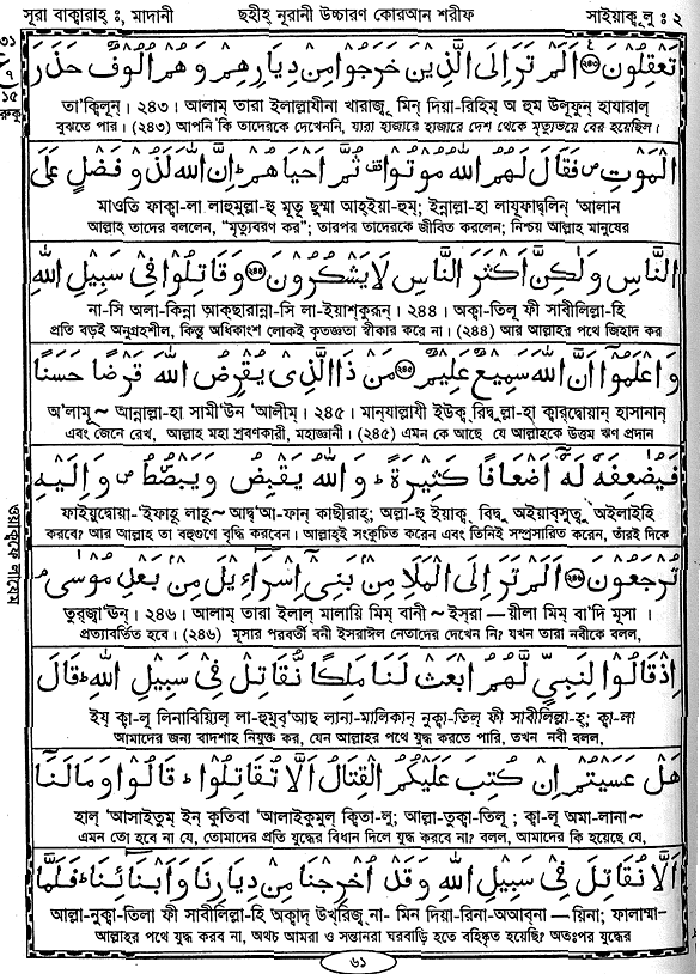 সূরা বাক্বারাহ্ ঃ, মাদানী
ছহীহ্ নূরানী উচ্চারণ কোরআন শরীফ
সাইয়াক্বূলু ঃ ২
৩১
৭
১৫
রুকূ
تَعْقِلُونَ ﴿۲۴۲﴾ اَلَمْ تَرَ اِلَى الَّذِيْنَ خَرَجُوْا مِنْ دِيَارِهِمْ وَهُمْ اُلُوْفٌ حَذَرَ
তা'ক্বিলূন্। ২৪৩। আলাম্ তারা ইলাল্লাযীনা খারাজূ মিন্ দিয়া-রিহিম্ অ হুম উলূফুন্ হাযারাল্
বুঝতে পার। (২৪৩) আপনি কি তাদেরকে দেখেননি, যারা হাজারে হাজারে দেশ থেকে মৃত্যুভয়ে বের হয়েছিল।
الْمَوْتِ ص فَقَالَ لَهُمُ اللهُ مُوْتُوْا قف ثُمَّ اَحْيَاهُمْ ط اِنَّ اللهَ لَذُوْ فَضْلٍ عَلَى
মাওতি ফাক্বা-লা লাহুমুল্লা-হু মূতূ ছুম্মা আহ্ইয়া-হুম্; ইন্নাল্লা-হা লাযূফাদ্বলিন্ 'আলান
আল্লাহ্ তাদের বললেন, "মৃত্যুবরণ কর"; তারপর তাদেরকে জীবিত করলেন; নিশ্চয় আল্লাহ মানুষের
النَّاسِ وَلٰكِنَّ اَكْثَرَ النَّاسِ لَا يَشْكُرُوْنَ ﴿۲۴۳﴾ وَقَاتِلُوْا فِيْ سَبِيْلِ اللهِ
না-সি অলা-কিন্না আক্ছারান্না-সি লা-ইয়াশ্কুরূন্। ২৪৪। অক্বা-তিলূ ফী সাবীলিল্লা-হি
প্রতি বড়ই অনুগ্রহশীল, কিন্তু অধিকাংশ লোকই কৃতজ্ঞতা স্বীকার করে না। (২৪৪) আর আল্লাহর পথে জিহাদ কর
وَاعْلَمُوْا اَنَّ اللهَ سَمِيْعٌ عَلِيْمٌ ﴿۲۴۴﴾ مَنْ ذَا الَّذِيْ يُقْرِضُ اللهَ قَرْضًا حَسَنًا
অ'লামূ ~ আন্নাল্লা-হা সামী'উন 'আলীম্। ২৪৫। মান্যাল্লাযী ইউক্ব্ রিদ্বুল্লা-হা ক্বার্দ্বোয়ান্ হাসানান্
এবং জেনে রেখ, আল্লাহ মহা শ্রবণকারী, মহাজ্ঞানী। (২৪৫) এমন কে আছে যে আল্লাহকে উত্তম ঋণ প্রদান
فَيُضٰعِفَهٗ لَهٗٓ اَضْعَافًا كَثِيْرَةً ط وَاللهُ يَقْبِضُ وَيَبْصُۜطُ ص وَاِلَيْهِ
ফাইয়ুদ্বোয়া-'ইফাহূ লাহূ ~ আদ্ব'আ-ফান্ কাছীরাহ্; অল্লা-হু ইয়াক্ব্ বিদ্বু অইয়াব্সুতু অইলাইহি
করবে? আর আল্লাহ তা বহুগুণে বৃদ্ধি করবেন। আল্লাহ্ই সংকুচিত করেন এবং তিনিই সম্প্রসারিত করেন, তাঁরই দিকে
ওয়াক্বফে লাযেম
تُرْجَعُوْنَ ﴿۲۴۵﴾ اَلَمْ تَرَ اِلَى الْمَلَاِ مِنْ بَنِيْٓ اِسْرَآءِيْلَ مِنْ بَعْدِ مُوْسٰى م
তুর্জ্বা'উন্। ২৪৬। আলাম্ তারা ইলাল্ মালায়ি মিম্ বানী ~ ইস্রা — য়ীলা মিম্ বা'দি মূসা।
প্রত্যাবর্তিত হবে। (২৪৬) মূসার পরবর্তী বনী ইসরাঈল নেতাদের দেখেন নি? যখন তারা নবীকে বলল,
اِذْ قَالُوْا لِنَبِيٍّ لَّهُمُ ابْعَثْ لَنَا مَلِكًا نُّقَاتِلْ فِيْ سَبِيْلِ اللهِ ط قَالَ
ইয্ ক্বা-লূ লিনাবিয়্যিল্ লা-হুমুব্'আছ্ ল্যনা-মালিকান্ নুক্বা-তিল্ ফী সাবীলিল্লা-হ্; ক্বা-লা
আমাদের জন্য বাদশাহ নিযুক্ত কর, যেন আল্লাহর পথে যুদ্ধ করতে পারি, তখন নবী বলল,
هَلْ عَسَيْتُمْ اِنْ كُتِبَ عَلَيْكُمُ الْقِتَالُ اَلَّا تُقَاتِلُوْا ط قَالُوْا وَمَا لَنَآ
হাল্ 'আসাইতুম্ ইন্ কুতিবা 'আলাইকুমুল্ ক্বিতা-লু; আল্লা-তুক্বা-তিলূ; ক্বা-লূ অমা-লানা ~
এমন তো হবে না যে, তোমাদের প্রতি যুদ্ধের বিধান দিলে যুদ্ধ করবে না? বলল, আমাদের কি হয়েছে যে,
اَلَّا نُقَاتِلَ فِيْ سَبِيْلِ اللهِ وَقَدْ اُخْرِجْنَا مِنْ دِيَارِنَا وَاَبْنَآئِنَا ط فَلَمَّا
আল্লা-নুক্বা-তিলা ফী সাবীলিল্লা-হি অক্বাদ্ উখ্রিজ্বনা- মিন দিয়া-রিনা-অআব্না — য়িনা; ফালাম্মা-
আল্লাহর পথে যুদ্ধ করব না, অথচ আমরা ও সন্তানরা ঘরবাড়ি হতে বহিষ্কৃত হয়েছি? অতঃপর যুদ্ধের
৬১